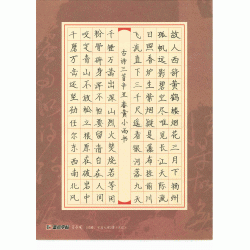 故人西辞黄鹤楼烟花三月下扬州
孤帆远影碧空尽唯见长江天际流
日照香炉生紫烟遥看瀑布挂前川
飞流直下三千尺疑是银河落九天
古诗三首
千锤万凿出深山烈火焚烧若等闲
粉骨碎身不怕要留清白在人间
咬定青山不放松立根原在破岩中
千磨万击还坚劲任尔东西南北风